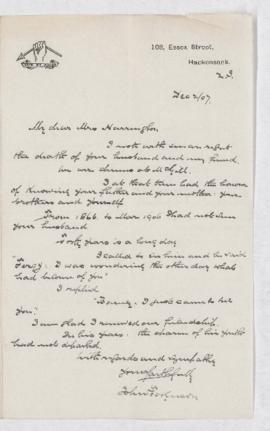 108, Essex Street,
Hackensack,
N.J.
Dec 2/07.
My dear Mrs Harrington,
I note with sincere regret
the death of your husband and my friend.
We were chums at McGill.
I at that time had the honor
of knowing your father and your mother your
brothers and yourself
From 1866 to Mar 1906 I had not seen
your husband
Forty years is a long day
I called to see him and he said
"Fergy. I was wondering the other day what
had become of you"
I replied
"Barney. I just came to see
you"
I am glad I renewed our friendship.
In his years the charm of his youth
had not departed.
With regards and sympathy
Yours faithfully
John Ferguson